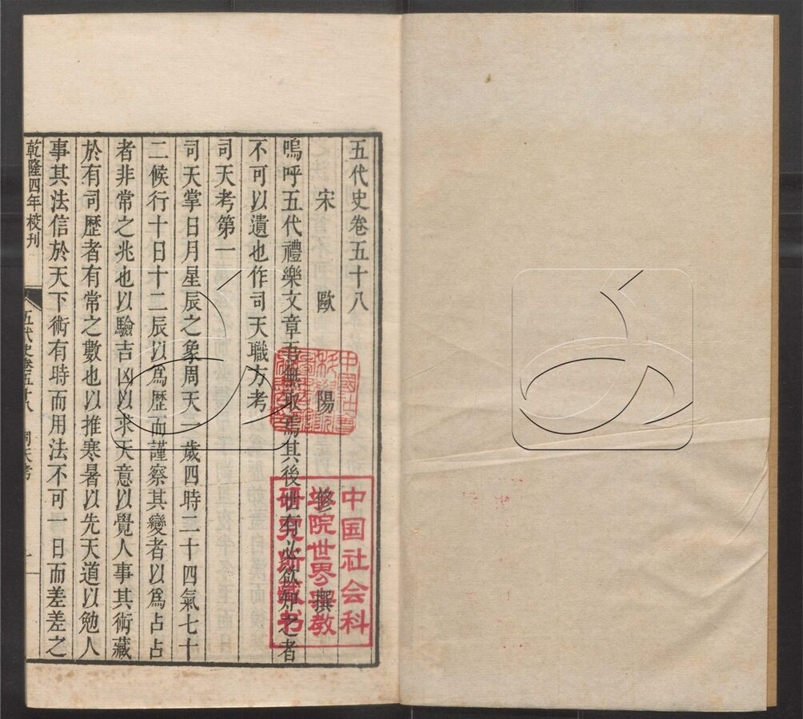 五代史卷五十八
宋歐陽修撰
嗚呼五代禮樂文章吾無取焉其後世有必欲知之者
不可以遺也作司天職方考
司天考第一
司天掌日月星辰之象周天一歲四時二十四氣七十
二候行十日十二辰以爲歷而謹察其變者以爲占占
者非常之兆也以驗吉凶以求天意以覺人事其術藏
於有司歷者有常之數也以推寒暑以先天道以勉人
事其法信於天下術有時而用法不可一日而差差之
乾隆四年校刊
五代史卷五十八 司天考 一
中国社会科
学院世界宗教
研究所藏书